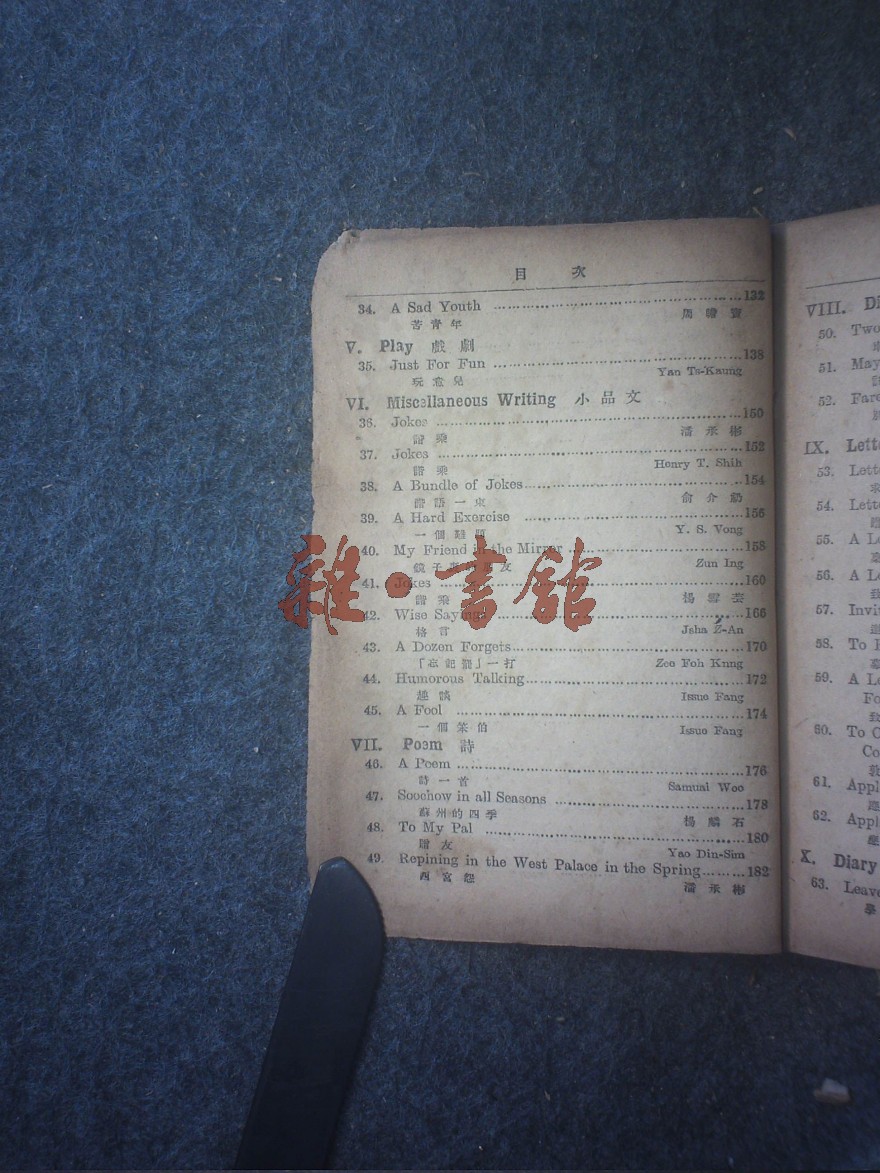 目 次
34. A Sad Youth ........................ 132
苦青年
V. Play 戲劇
35. Just For Fun ........................ 138
玩意兒 Yan Ts-Kaung
VI. Miscellaneous Writing 小品文
36. Jokes ........................ 150
諧乘 潘承彬
37. Jokes ........................ 152
諧乘 Henry T. Shih
38. A Bundle of Jokes ........................ 154
諧語一束 俞介
39. A Hard Exercise ........................ 156
一個難題 Y. S. Vong
40. My Friend in the Mirror ........................ 158
鏡子 友 Zun Ing
41. Jokes ........................ 160
諧乘 楊雲芸
42. Wise Sayings ........................ 166
格言 Jsha Z-An
43. A Dozen Forgets ........................ 170
「忘記能」一打 Zee Foh Kung
44. Humorous Talking ........................ 172
趣談 Issuo Fang
45. A Fool ........................ 174
一個笨伯 Issuo Fang
VII. Poem 詩
46. A Poem ........................ 176
詩一首 Samual Woo
47. Soochow in all Seasons ........................ 178
蘇州的四季 楊麟石
48. To My Pal ........................ 180
贈友 Yao Din-Sun
49. Repining in the West Palace in the Spring ......... 182
西宮怨 潘承彬
VIII.
50. Two
51. May
52. Fare
IX. Lette
53. Lette
54. Lette
55. A Le
56. A Le
57. Invi
58. To
59. A Le
Fo
60. To C
Co
61. Appl
62. Appl
X. Diary
63. Leave
雜·書館